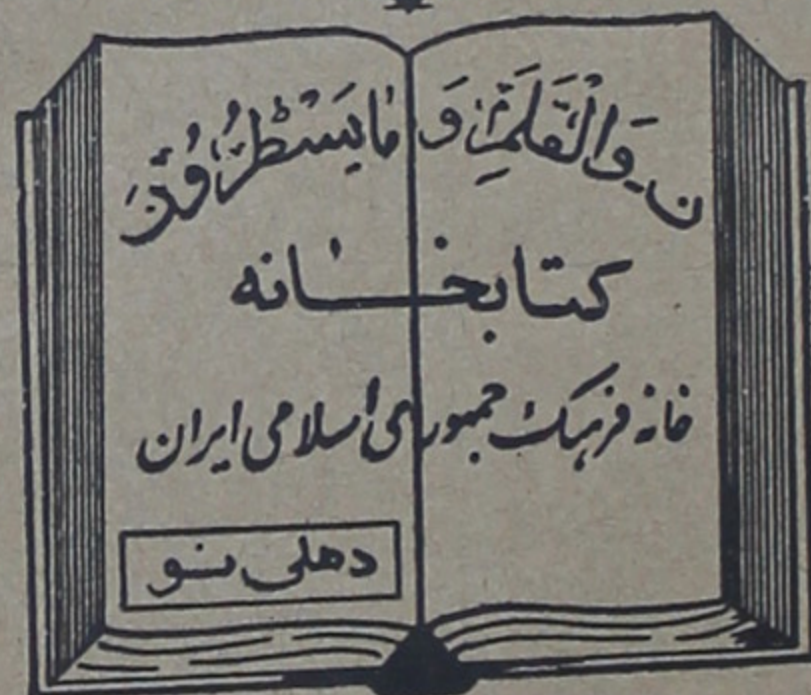 ن وَالْقَلَمِ وَ مَا يَسْطُرُونَ
کتابخانه
خانه فرهنگ جمهوری اسلامی ایران
دهلی نو